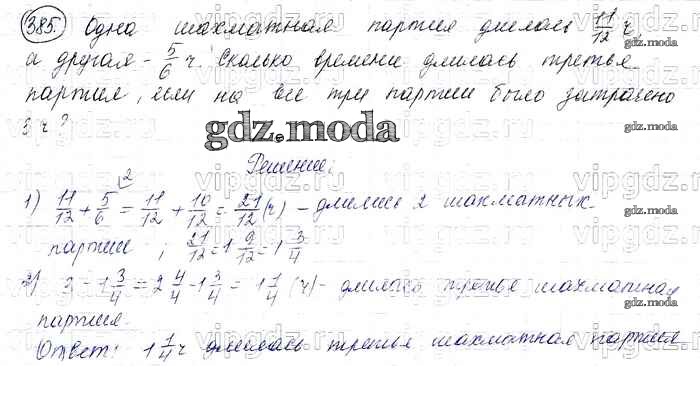 385. Одна шахматная партия длилась 11/12 ч,
а другая - 5/6 ч. Сколько времени длилась третья
партия, если на все три партии было затрачено
3 ч?
gdz.moda
Решение:
1) 11/12 + 5/6 = 11/12 + 10/12 = 21/12 (ч) - длились 2 шахматных
партии ; 21/12 = 1 9/12 = 1 3/4
2) 3 - 1 3/4 = 2 4/4 - 1 3/4 = 1 1/4 (ч) - длилась третья шахматная
партия.
Ответ: 1 1/4 ч длилась третья шахматная партия